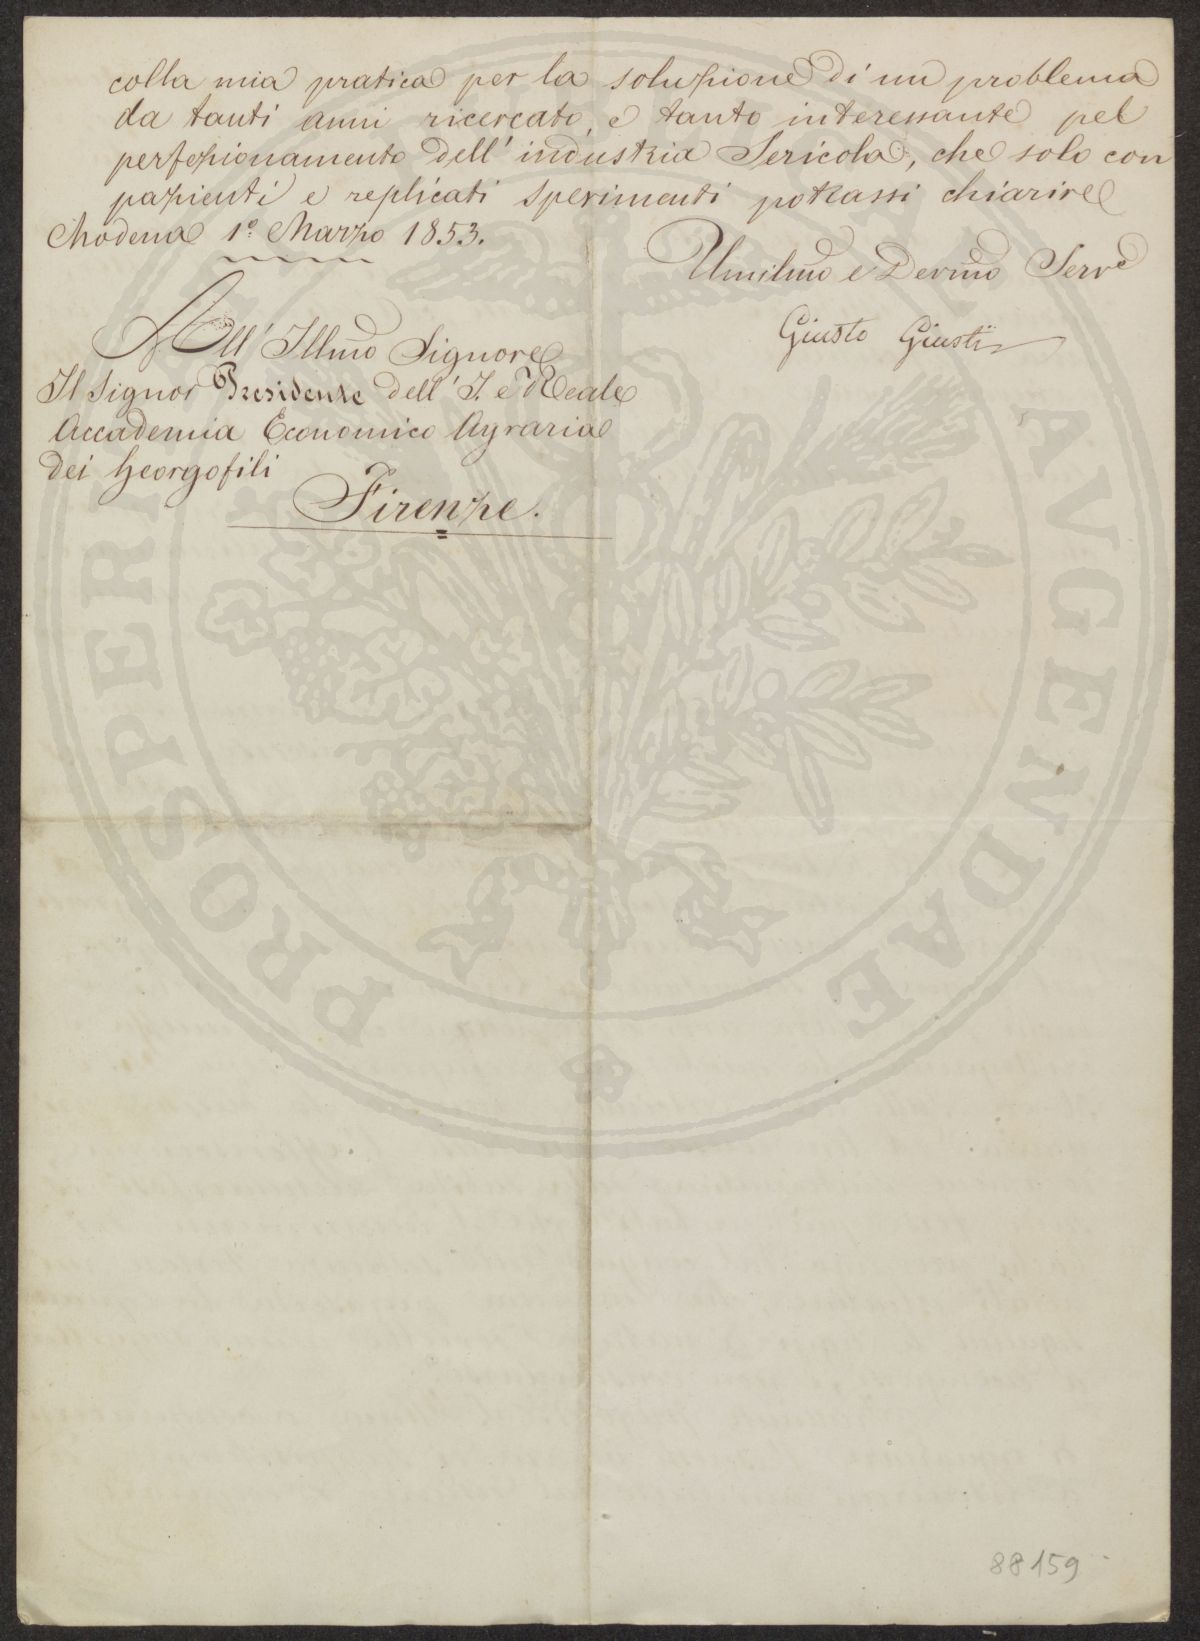 colla mia pratica per la soluzione di un problema
da tanti anni ricercato, e tanto interessante pel
perfezionamento dell' industria Sericola, che solo con
pazienti e replicati sperimenti potrassi chiarire
Modena 1° Marzo 1853.
Umilmo e Devmo Serve
Giusto Giusti
All' Illmo Signore
Il Signor Presidente dell' I. e Reale
Accademia Economico Agraria
dei Georgofili
Firenze.
PROSPERITATI AVGENDAE
88159